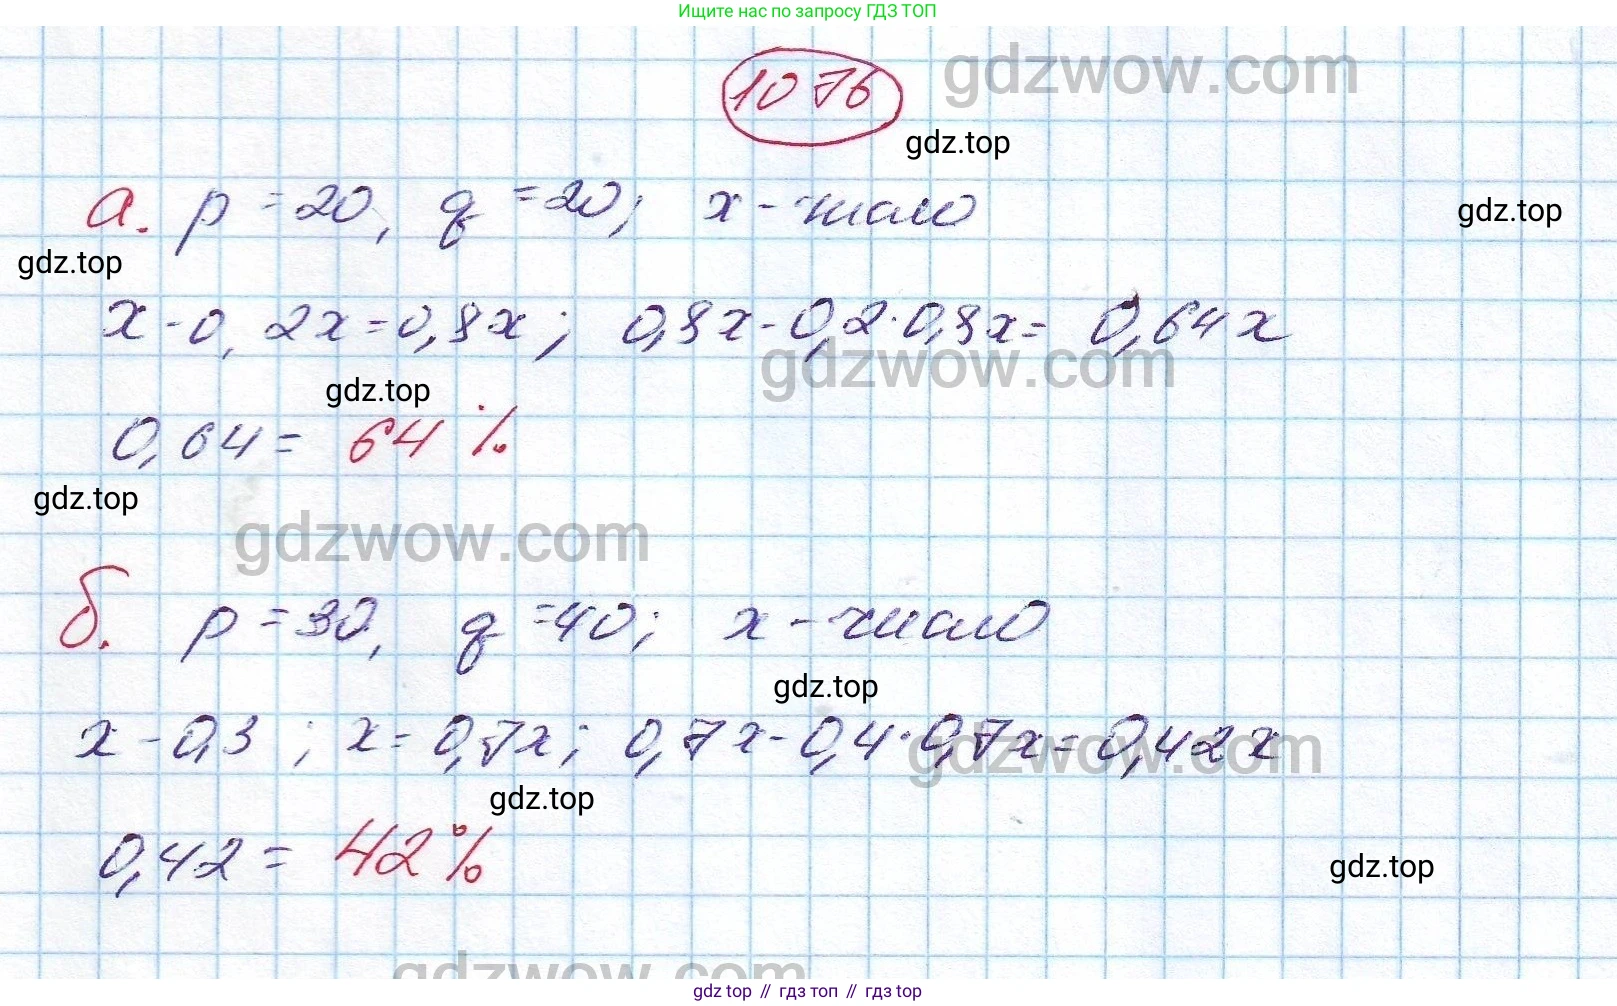 Ищите нас по запросу ГДЗ ТОП
1076
gdzwow.com
gdz.top
а. p = 20, q = 20; x - число
gdz.top
gdz.top
x - 0,2x = 0,8x; 0,8x - 0,2·0,8x = 0,64x
gdzwow.com
gdz.top
0,64 = 64%
gdz.top
gdzwow.com
б. p = 30, q = 40; x - число
gdz.top
x - 0,3 ; x = 0,7x; 0,7x - 0,4·0,7x = 0,42x
gdzwow.com
gdz.top
0,42 = 42%
gdz.top
gdzwow.com
gdz top // гдз топ // гдз top